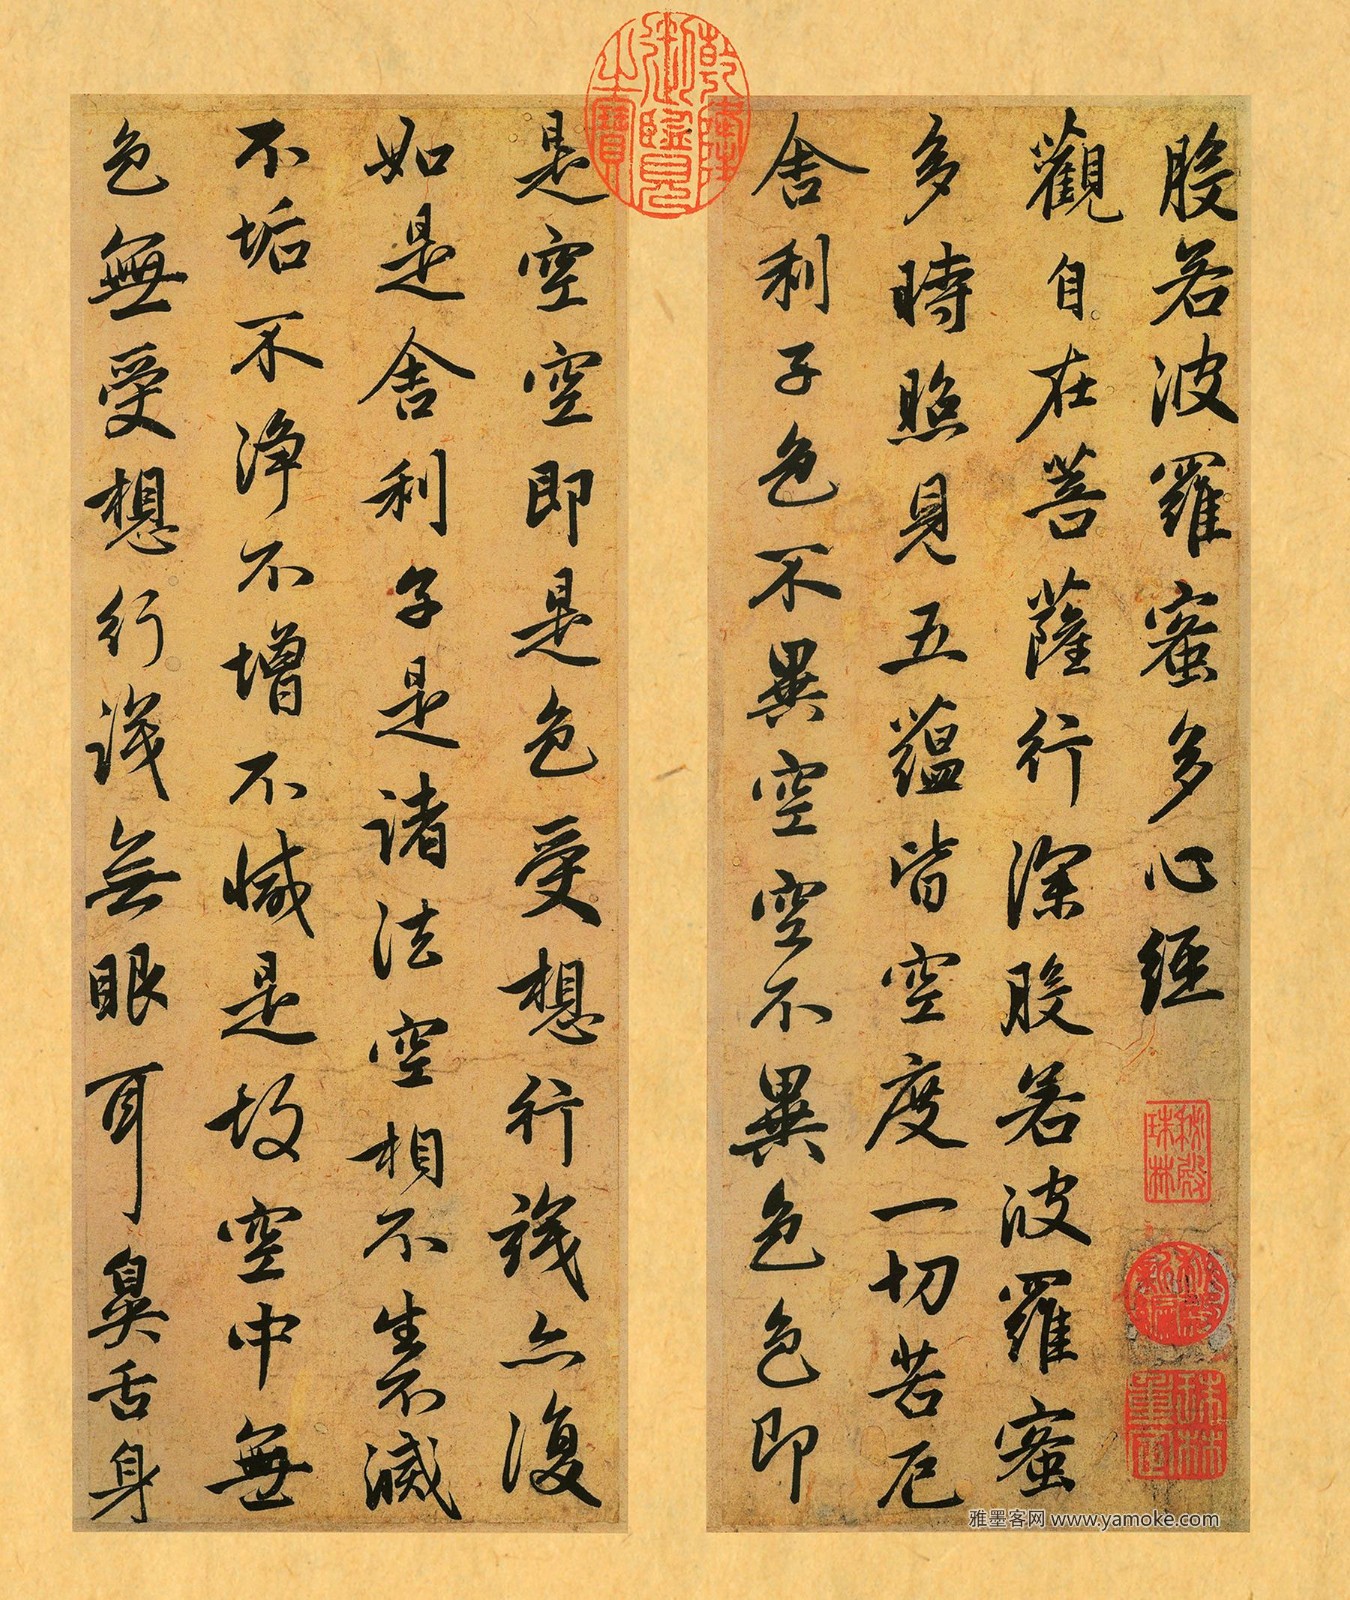 般若波羅蜜多心經
觀自在菩薩行深般若波羅蜜
多時照見五蘊皆空度一切苦厄
舍利子色不異空空不異色色即
是空空即是色受想行識亦復
如是舍利子是諸法空相不生不滅
不垢不淨不增不減是故空中無
色無受想行識無眼耳鼻舌身
乾隆御覽之寶
秘殿珠林
秘殿新編
珠林重定
雅墨客网 www.yamoke.com